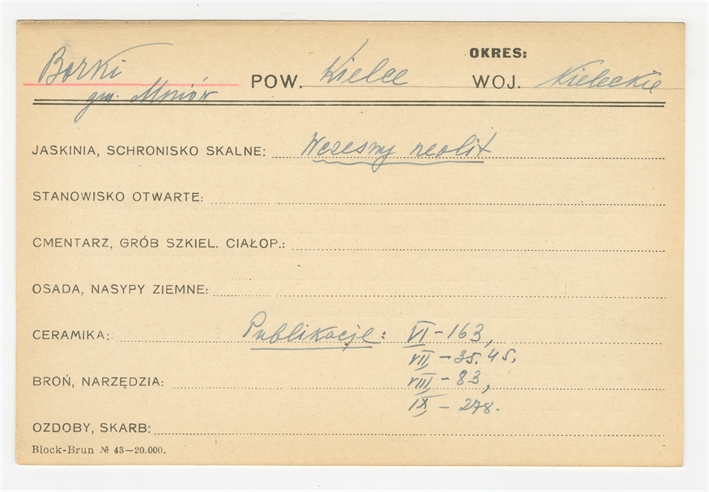 OKRES:
Borki POW. Kielce WOJ. Kieleckie
gm. Mniów
JASKINIA, SCHRONISKO SKALNE: Wczesny neolit
STANOWISKO OTWARTE:
CMENTARZ, GRÓB SZKIEL. CIAŁOP.:
OSADA, NASYPY ZIEMNE:
CERAMIKA: Publikacje: VI - 163,
VII - 35. 45.
BROŃ, NARZĘDZIA: VIII - 83,
IX - 278.
OZDOBY, SKARB:
Block-Brun № 43—20.000.